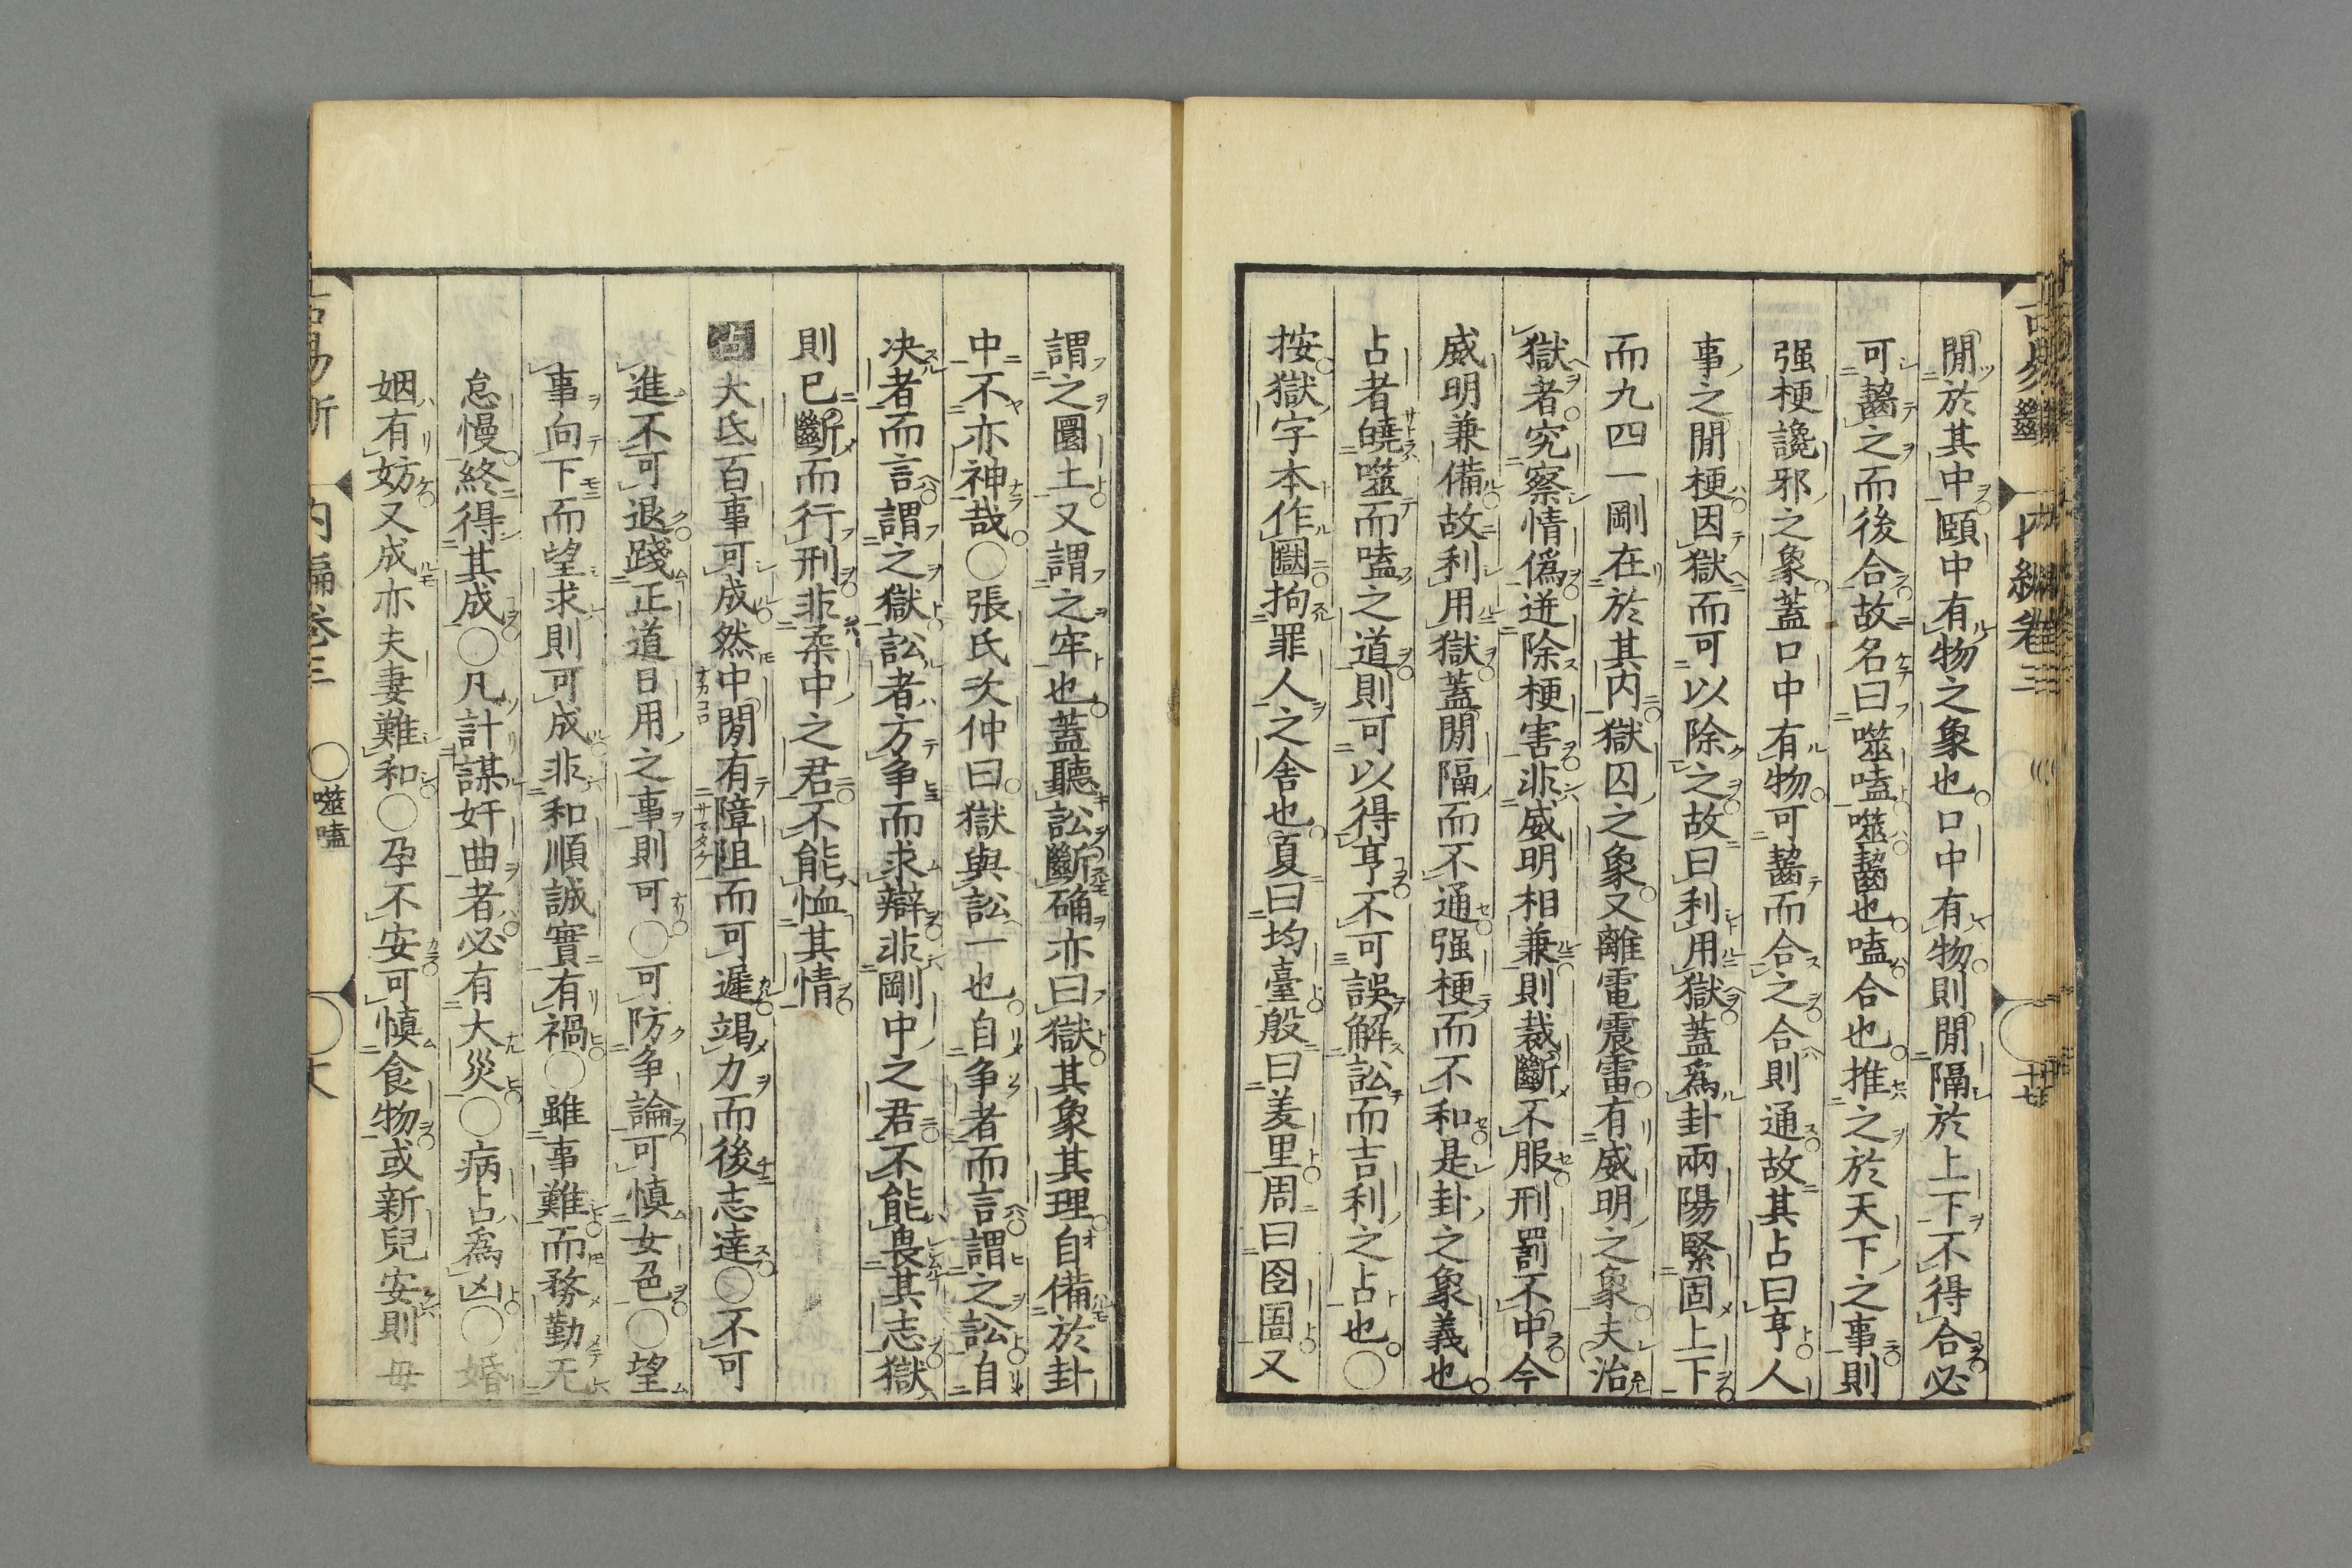 閒於其中頤中有物之象也口中有物則閒隔於上下不得合必
可齧之而後合故名曰噬嗑噬齧也嗑合也推之於天下之事則
强梗讒邪之象蓋口中有物可齧而合之合則通故其占曰亨人
事之閒梗因獄而可以除之故曰利用獄蓋爲卦兩陽緊固上下
而九四一剛在於其内獄囚之象又離電震雷有威明之象夫治
獄者究察情僞迸除梗害非威明相兼則裁斷不服刑罰不中今
威明兼備故利用獄蓋閒隔而不通强梗而不和是卦之象義也
占者皢噬而嗑之道則可以得亨不可誤解訟而吉利之占也〇
按獄字本作圝拘罪人之舍也夏曰均臺殷曰羑里周曰囹圄又
謂之圜土又謂之牢也蓋聽訟斷确亦曰獄其象其理自備於卦
中不亦神哉〇張氏次仲曰獄與訟一也自争者而言謂之訟自
决者而言謂之獄訟者方争而求辯非剛中之君不能畏其志獄
則已斷而行刑非柔中之君不能恤其情
占大氐百事可成然中閒有障阻而可遲竭力而後志達〇不可
進不可退踐正道日用之事則可〇可防争論可慎女色〇望
事向下而望求則可成非和順誠實有禍〇雖事難而務勤无
怠慢終得其成〇凡計謀奸曲者必有大災〇病占爲凶〇婚
姻有妨又成亦夫妻難和〇孕不安可慎食物或新兒安則毋
内編卷三 〇噬嗑
内編卷三 十七